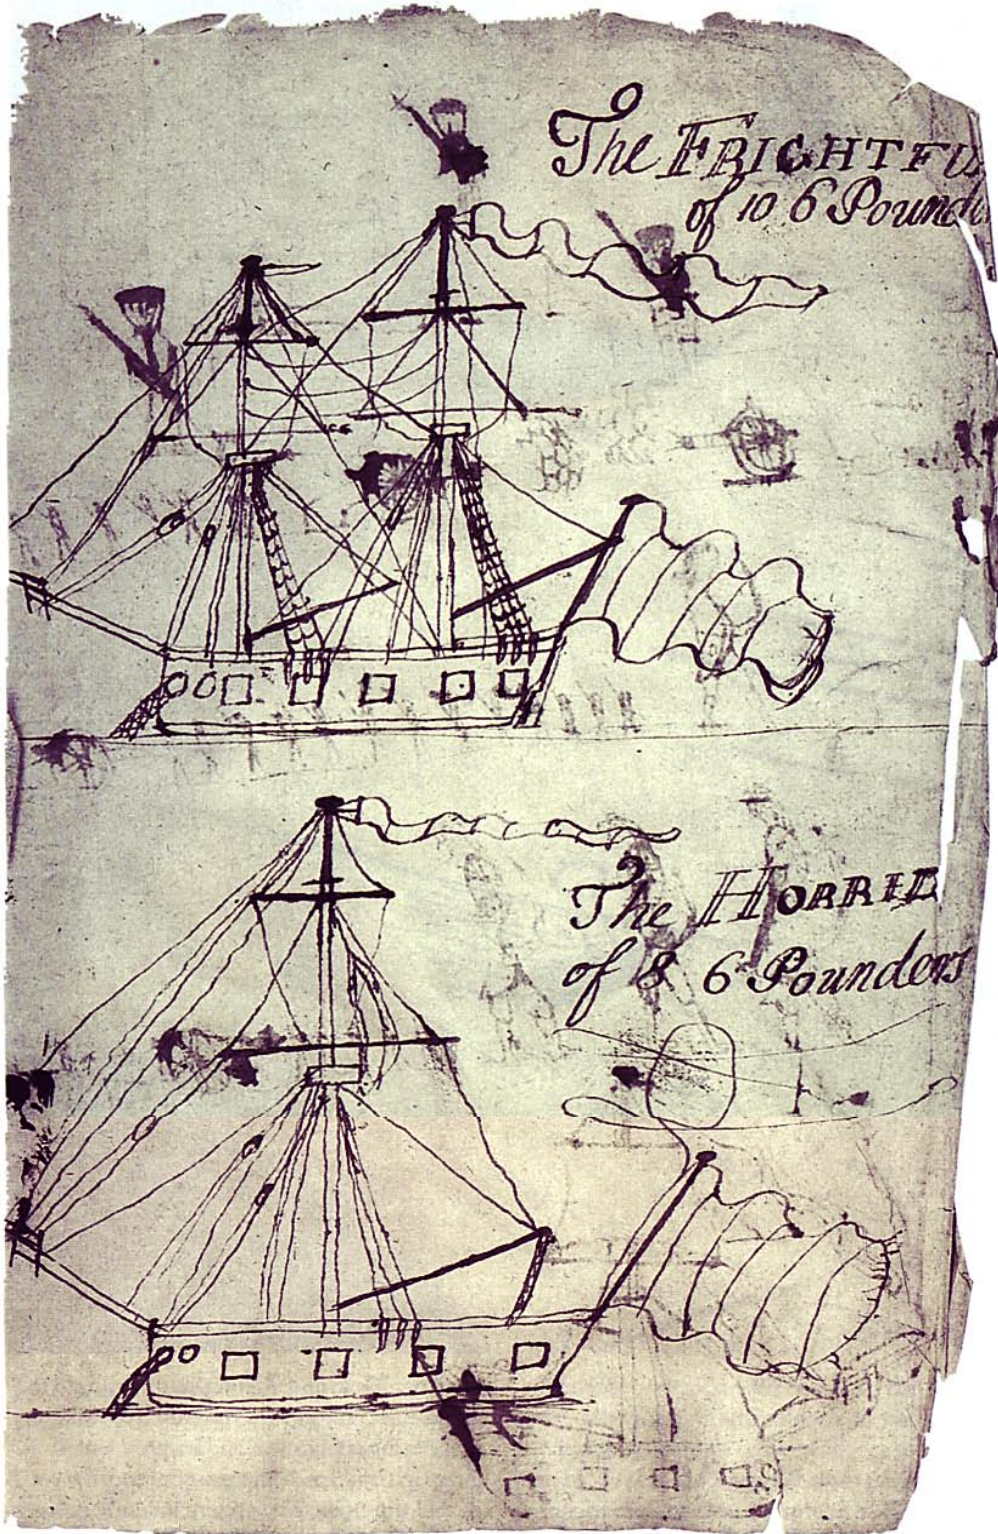 The FRIGHTFU
of 10 6 Pounde
The HORRID
of 8 6 Pounders